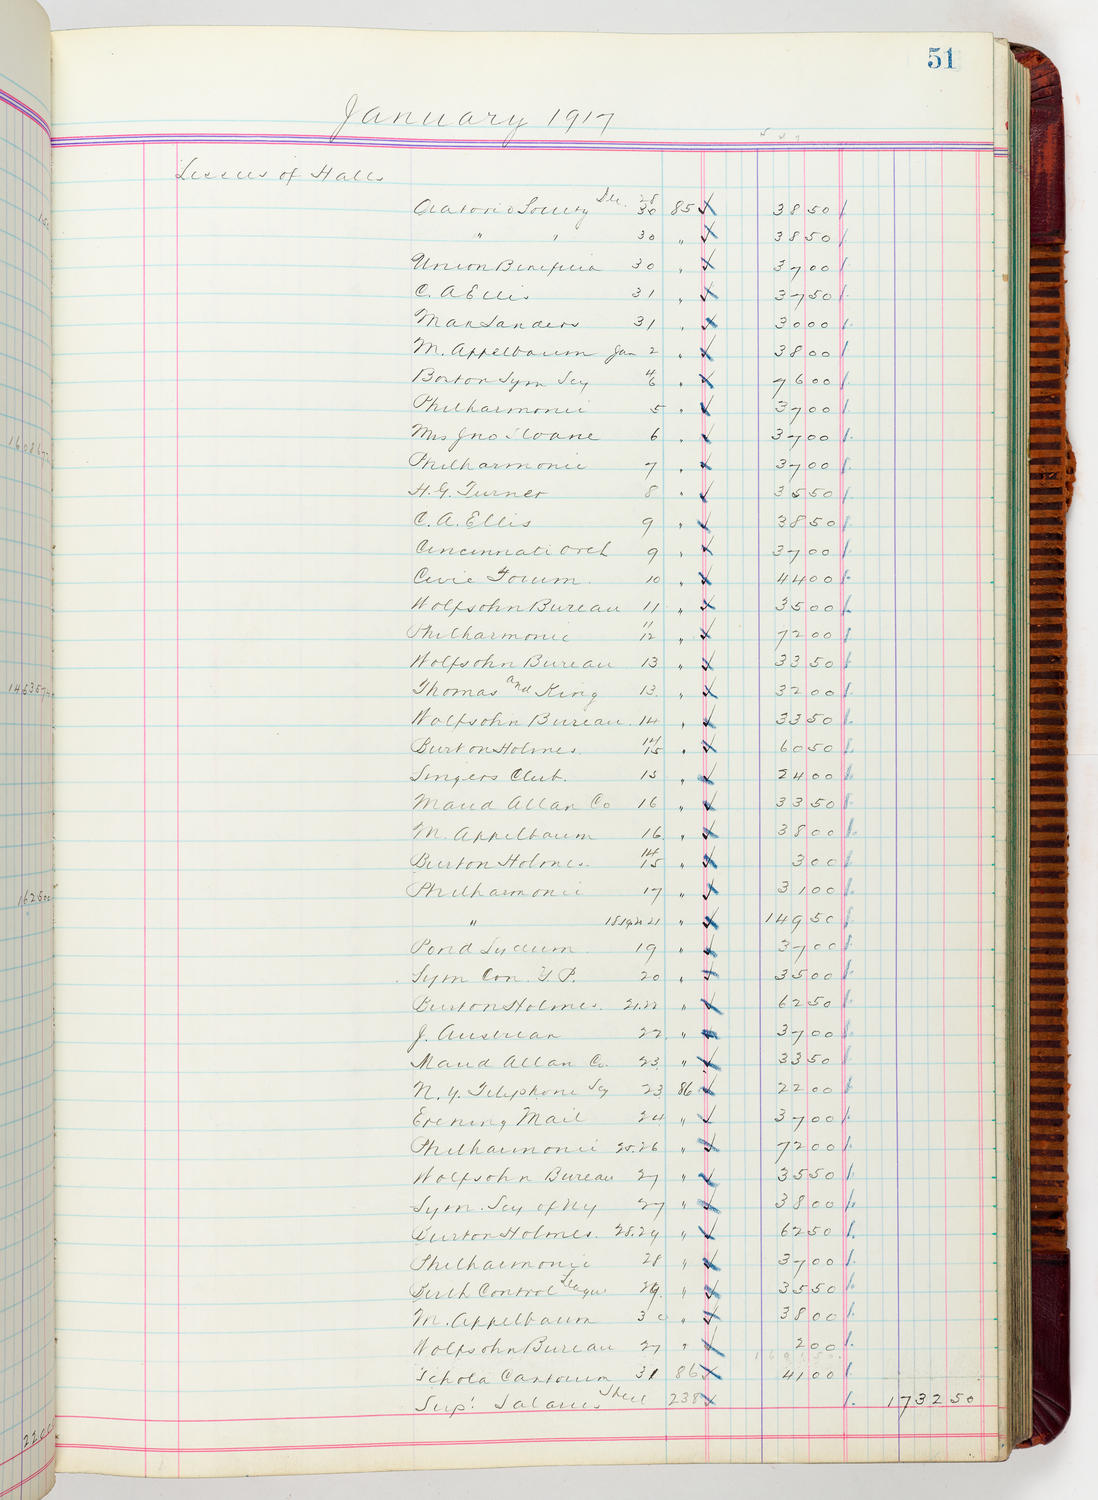 51
January 1917
Lessees of Halls
Oratorio Society Dec. 28 30 85 3850
" " 30 " 3850
Union Benefica 30 " 3700
C. A Ellis 31 " 3750
Max Sanders 31 " 3000
M. Appelbaum Jan 2 " 3800
Boston Sym Scy 4 6 " 7600
Philharmonic 5 " 3700
Mrs Jno Sloane 6 " 3700
Philharmonic 7 " 3700
H. G. Turner 8 " 3550
C. A. Ellis 9 " 3850
Cincinnati Orch 9 " 3700
Civic Forum 10 " 4400
Wolfsohn Bureau 11 " 3500
Philharmonic 11 12 " 7200
Wolfsohn Bureau 13 " 3350
Thomas and King 13 " 3200
Wolfsohn Bureau 14 " 3350
Burton Holmes 14 15 " 6050
Singers Club. 15 " 2400
Maud Allan Co 16 " 3350
M. Appelbaum 16 " 3800
Burton Holmes. 14 15 " 300
Philharmonic 17 " 3100
" 18 19 20 21 " 14950
Pond Lyceum 19 " 3700
Sym Con. Y. P. 20 " 3500
Burton Holmes. 21.22 " 6250
J. Austrian 22 " 3700
Maud Allan Co. 23 " 3350
N. Y. Telephone Sy 23 86 2200
Evening Mail 24 " 3700
Philharmonic 25.26 " 7200
Wolfsohn Bureau 27 " 3550
Sym. Scy of NY 27 " 3800
Burton Holmes. 28.29 " 6250
Philharmonic 28 " 3700
Birth Control League 29 " 3550
M. Appelbaum 30 " 3800
Wolfsohn Bureau 27 " 200
Schola Cantorum 31 86 4100
Sup! Salaries Sheet 238 173250